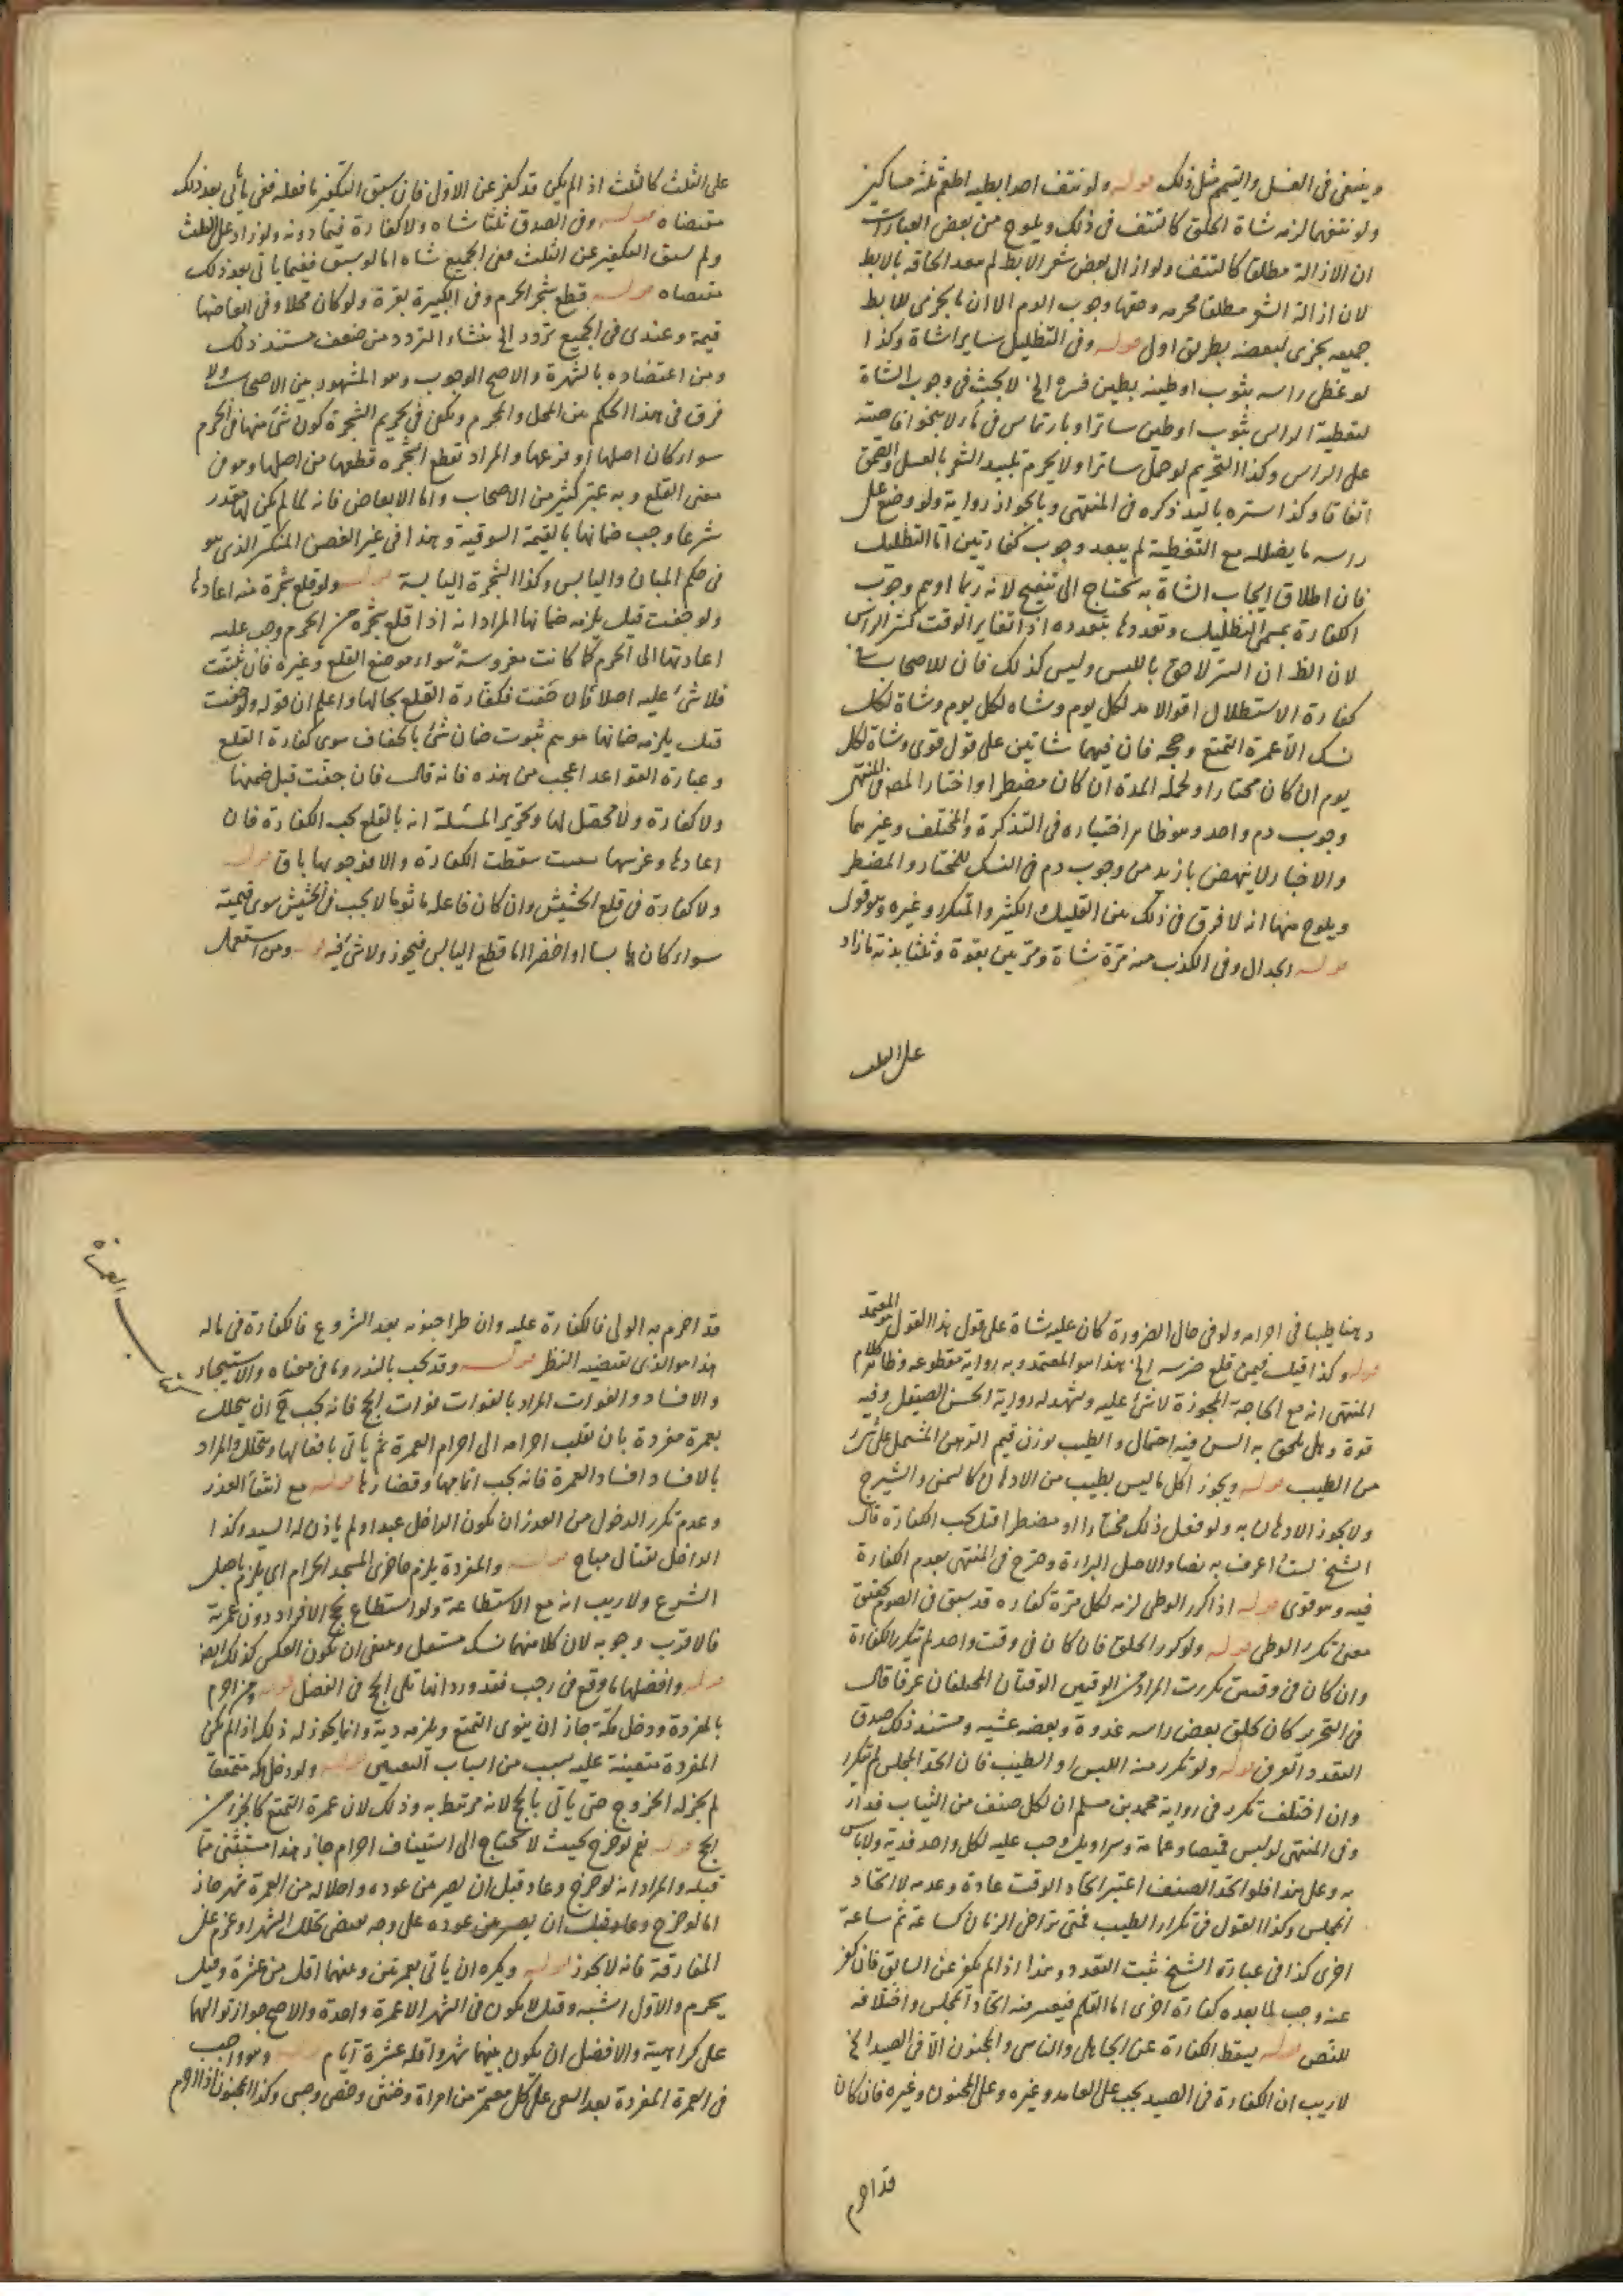 وينبغي في الغسل والتيمم مثل ذلك قوله ولو نتف احد ابطيه اطعم ثلثه مساكين
ولو نتفهما لزمه شاة الحلق كالنتف في ذلك ويلوح من بعض العبارات
ان الازالة مطلقا كالنتف ولو ازال بعض شعر الابط لم يبعد الحاقه بالابط
لان ازالة الشعر مطلقا محرمه وحقها وجوب الدم الا ان ما يجزى للابط
جميعه يجزى لبعضه بطريق اولى قوله وفي التظليل سايرا شاة وكذا
لو غطى راسه بثوب او طينه بطين فستره الخ لا بحث في وجوب الشاة
لتغطية الراس بثوب او طين ساتر او بارتماس في ماء لا بنحو افاضته
على الراس وكذا التحريم لو حمل ساترا ولا يحرم تلبيد الشعر بالعسل والصمغ
اتفاقا وكذا ستره باليد ذكره في المنتهى وبالجواز رواية ولو وضع على
راسه ما يضلله مع التغطية لم يبعد وجوب كفارتين اما التظليل
فان اطلاق ايجاب الشاة به يحتاج الى تنقيح لانه ربما اوهم وجوب
الكفارة بمسمى التظليل وتعددها بتعدده اذا تغاير الوقت كستر الراس
لان الظ ان الستر لاحق باللبس وليس كذلك فان للاصحاب في
كفارة الاستظلال اقوالا مد لكل يوم وشاه لكل يوم وشاة لكل
نسك الا عمرة التمتع وحجه فان فيهما شاتين على قول قوى وشاة لكل
يوم ان كان مختارا ولجملة المدة ان كان مضطرا واختار المصر في المنتهى
وجوب دم واحد وهو ظاهر اختياره في التذكرة والمختلف وغيرهما
والاخبار لا ينهض بازيد من وجوب دم في النسك للمختار والمضطر
ويلوح منها انه لا فرق في ذلك بين القليل الكثير والمتكرر وغيره وهو قوي
قوله الجدال وفي الكذب منه مرة شاة ومرتين بقرة وثلثا بدنة ما زاد
على الثلث
على الثلث كالثلث اذا لم يكن قد كفر عن الاول فان سبق التكفير ما فعله ففي ما ياتي بعد ذلك
مقتضاه قوله وفي الصدق ثلثا شاه ولا كفارة فيما دونه ولو زاد على الثلث
ولم يسبق التكفير عن الثلث ففي الجميع شاه اما لو سبق ففيما ياتي بعد ذلك
مقتضاه قوله قطع شجر الحرم وفي الكبيرة بقرة ولو كان محلا وفي ابعاضها
قيمة وعندى في الجميع تردد الخ ينشاء التردد من ضعف مستند ذلك
ومن اعتضاده بالشهرة والاصح الوجوب وهو المشهور بين الاصحاب ولا
فرق في هذا الحكم بين المحل والمحرم ويكفي في تحريم الشجرة كون شئ منها في الحرم
سواء كان اصلها او فرعها والمراد بقطع الشجره قطعها من اصلها وهو في
معنى القلع وبه عبر كثير من الاصحاب واما الابعاض فانه لما لم يكن لها مقدر
شرعا وجب ضمانها بالقيمة السوقية وهذا في غير الغصن المنكسر الذي هو
في حكم المبان واليابس وكذا الشجرة اليابسة قوله ولو قلع شجرة منه اعادها
ولو جفت قيل يلزمه ضمانها المراد انه اذا قلع شجرة من الحرم وجب عليه
اعادتها الى الحرم كما كانت مغروسة سواء موضع القلع وغيره فان ثبتت
فلا شئ عليه اصلا فان جفت فكفارة القلع بحالها واعلم ان قوله ولو جفت
قيل يلزمه ضمانها موهم ثبوت ضمان شئ بالجفاف سوى كفارة القلع
وعبارة القواعد اعجب من هذه فانه قال فان جفت قيل ضمنها
ولا كفارة ولا محصل لها وتحرير المسئلة انه بالقلع تجب الكفارة فان
اعادها وغرسها سقطت الكفارة والا فوجوبها باق قوله
ولا كفارة في قلع الحشيش وان كان فاعله ماثوما لا يجب في الحشيش سوى قيمته
سواء كان يابسا او اخضر اما قطع اليابس فيجوز ولا شئ فيه قوله ومن استعمل
دهنا طيبا في احرامه ولو في حال الضرورة كان عليه شاة على قول هذا القول هو المعتمد
قوله وكذا قيل فيمن قلع ضرسه الخ هذا هو المعتمد وبه رواية مقطوعه وظاهر كلام
المنتهى انه مع الحاجة المجوزة لا شئ عليه وتشهد له رواية الحسن الصيقل وفيه
قوة وهل يلحق به السن فيه احتمال والطيب
من الطيب قوله ويجوز اكل ما ليس بطيب من الادهان كالسمن والشيرج
ولا يجوز الادهان به ولو فعل ذلك مختارا او مضطرا قيل تجب الكفارة قال
الشيخ لست اعرف به نصا والاصل البراءة وصرح في المنتهى بعدم الكفارة
فيه وهو قوى قوله اذا كرر الوطى لزمه لكل مرة كفاره قد سبق في الصوم تحقيق
معنى تكرر الوطى قوله ولو كرر الحلق فان كان في وقت واحد لم تتكرر الكفارة
وان كان في وقتين تكررت المراد من الوقتين الوقتان المختلفان عرفا قال
في التحرير كان يحلق بعض راسه غدوة وبعضه عشيه ومستند ذلك صدق
التعدد العرفي قوله ولو تكرر منه اللبس او الطيب فان اتحد المجلس لم تتكرر
وان اختلف تكرر في رواية محمد بن مسلم ان لكل صنف من الثياب فداء
وفي المنتهى لو لبس قميصا وعمامة وسراويل وجب عليه لكل واحد فدية ولا باس
به وعلى هذا فلو اتحد الصنف اعتبر اتحاد الوقت عادة وعدمه لا اتحاد
المجلس وكذا القول في تكرار الطيب فمتى تراخى الزمان كساعة ثم ساعة
اخرى كذا في عبارة الشيخ ثبت التعدد وهذا اذا لم يكفر عن السابق فان كفر
عنه وجب لما بعده كفارة اخرى اما القلم فيعتبر فيه اتحاد المجلس واختلافه
للنص قوله يسقط الكفارة عن الجاهل والناسي والمجنون الا في الصيد الخ
لا ريب ان الكفارة في الصيد يجب على العامد وغيره وعلى المجنون وغيره فان كان
قد احرم
قد احرم به الولي فالكفارة عليه وان طرا جنونه بعد الشروع فالكفارة في ماله
هذا هو الذي يقتضيه النظر قوله وقد تجب بالنذر وما في معناه والاستيجار
والافساد والفوات المراد بالفوات فوات الحج فانه يجب ح ان يتحلل
بعمرة مفردة بان يقلب احرامه الى احرام العمرة ثم ياتي بافعالها ويتحلل والمراد
بالافساد افساد العمرة فانه يجب اتمامها وقضاؤها قوله مع انتفاء العذر
وعدم تكرر الدخول من العذر ان يكون الداخل عبدا ولم ياذن له السيد وكذا
الداخل لقتال مباح قوله والمفردة يلزم حاضري المسجد الحرام اي يلزم باصل
الشرع ولا ريب انه مع الاستطاعة ولو استطاع لحج الافراد دون عمرته
فالاقرب وجوبه لان كلا منهما نسك مستقل وينبغي ان يكون العكس كذلك ايضا
قوله وافضلها ما وقع في رجب فقد ورد انها تلي الحج في الفضل قوله ومن احرم
بالمفردة ودخل مكة جاز ان ينوى التمتع ويلزمه دم وانما يجوز له ذلك اذا لم تكن
المفردة متعينة عليه بسبب من اسباب التعيين قوله ولو دخل مكة متمتعا
لم يجز له الخروج حتى ياتي بالحج لانه مرتبط به وذلك لان عمرة التمتع كالجزء من
الحج قوله نعم لو خرج بحيث لا يحتاج الى استيناف احرام جاز هذا مستثنى مما
قبله والمراد انه لو خرج وعاد قبل ان يمر من عوده واحلاله من العمرة شهر جاز
اما لو خرج وعاد وقبل ان يصير من عوده على وجه بمضي تخلل الشهر او عزم على
المفارقة فانه لا يجوز قوله ويكره ان ياتي بعمرتين وبينهما اقل من عشرة وقيل
يحرم والاول اشبه وقيل لا يكون في الشهر الا عمرة واحدة والاصح جواز تواليهما
على كراهية والافضل ان يكون بينهما شهر واقله عشرة ايام قوله وهو واجب
في العمرة المفردة بعد السعى على كل معتمر من امراة وخنثى وخصى وصبى وكذا المجنون اذا احرم